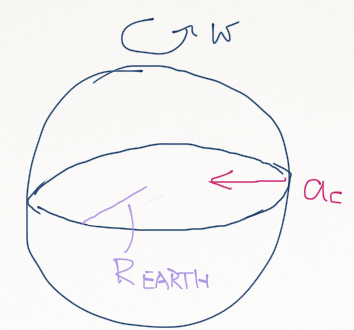 w
ac
REARTH